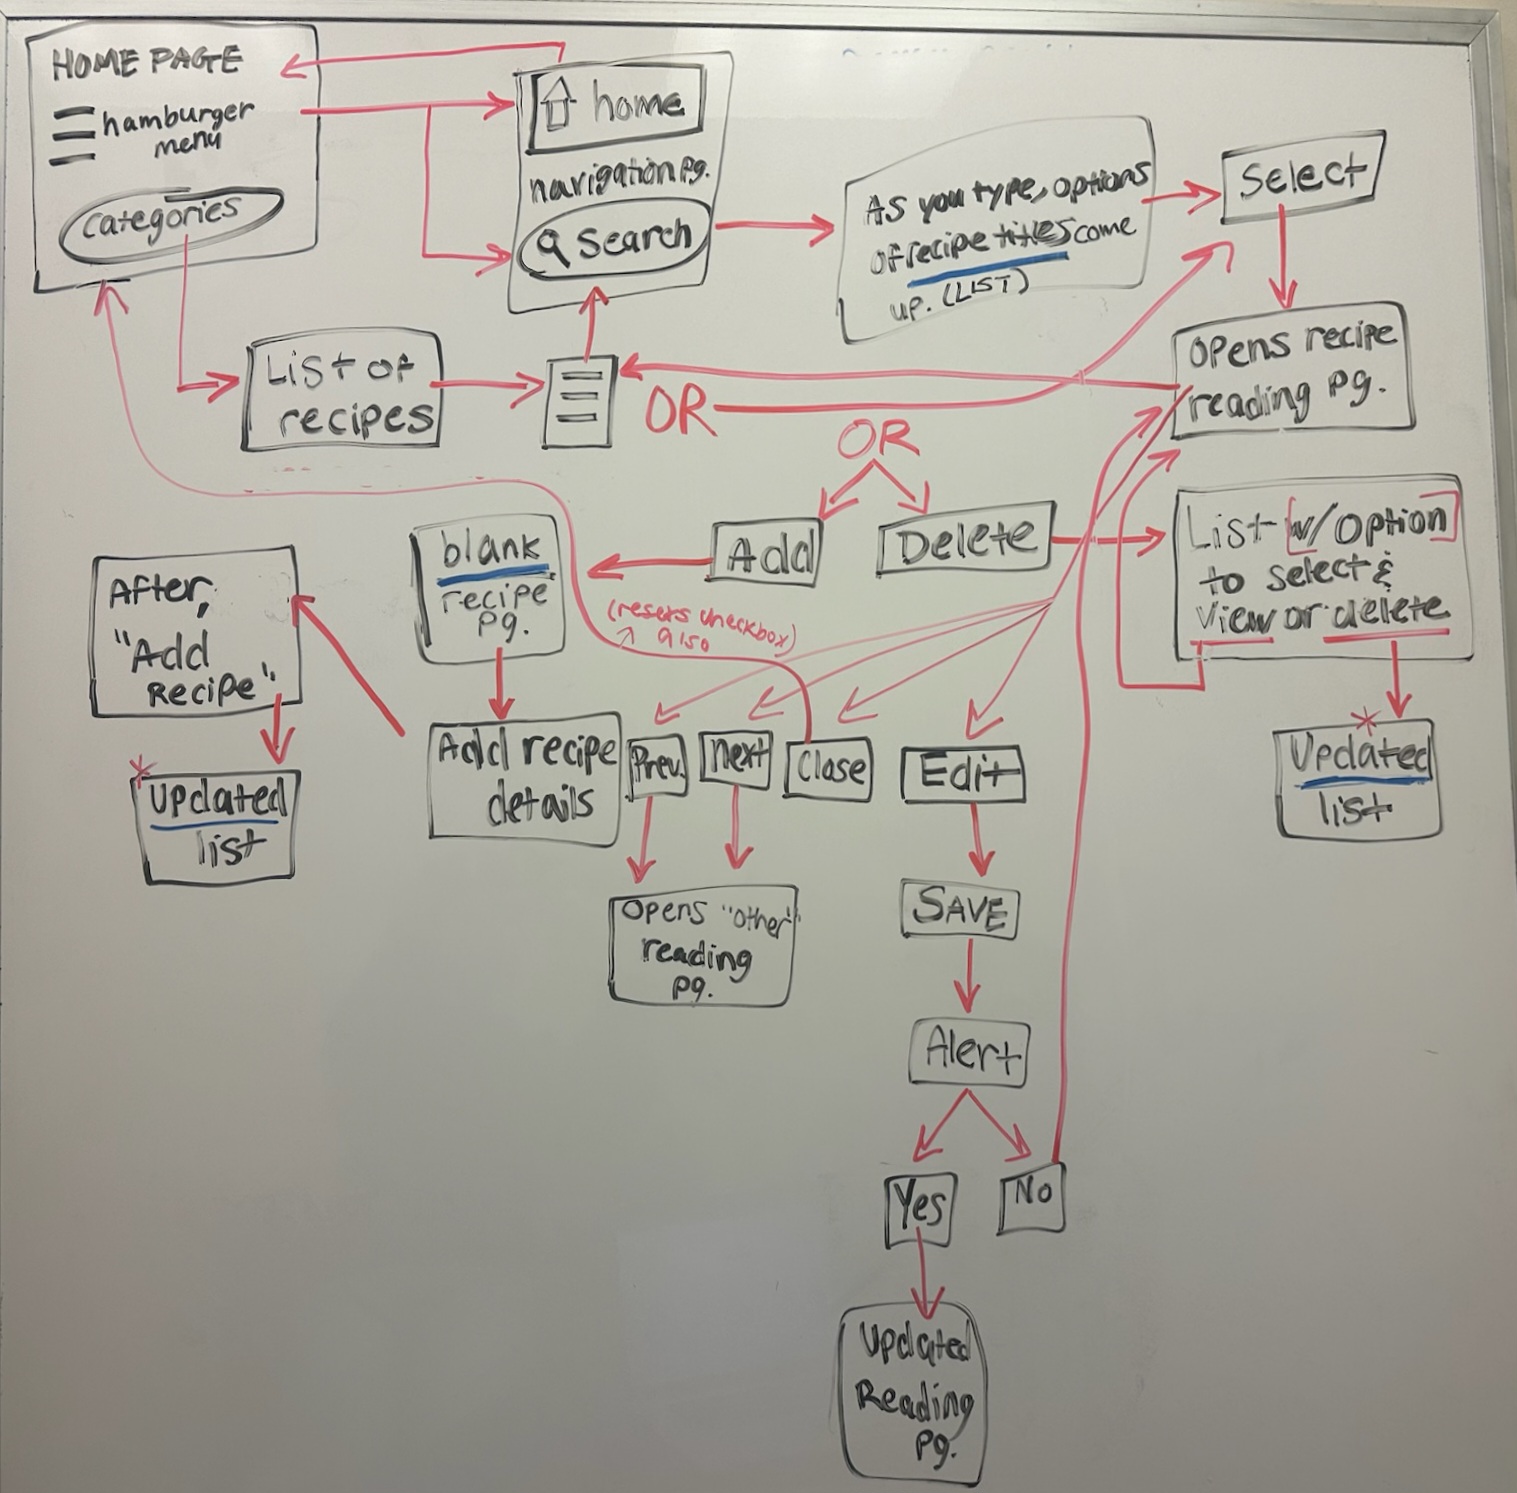 HOME PAGE
hamburger
menu
categories
home
navigation pg.
search
As you type, options
of recipe titles come
up. (LIST)
Select
opens recipe
reading pg.
List of
recipes
OR
OR
Add
Delete
List w/ option
to select &
view or delete
Updated
list
blank
recipe
pg.
(resets checkbox)
also
After,
"Add
Recipe".
updated
list
Add recipe
details
Prev.
Next
Close
Edit
Opens "other"
reading
pg.
SAVE
Alert
Yes
No
Updated
Reading
pg.